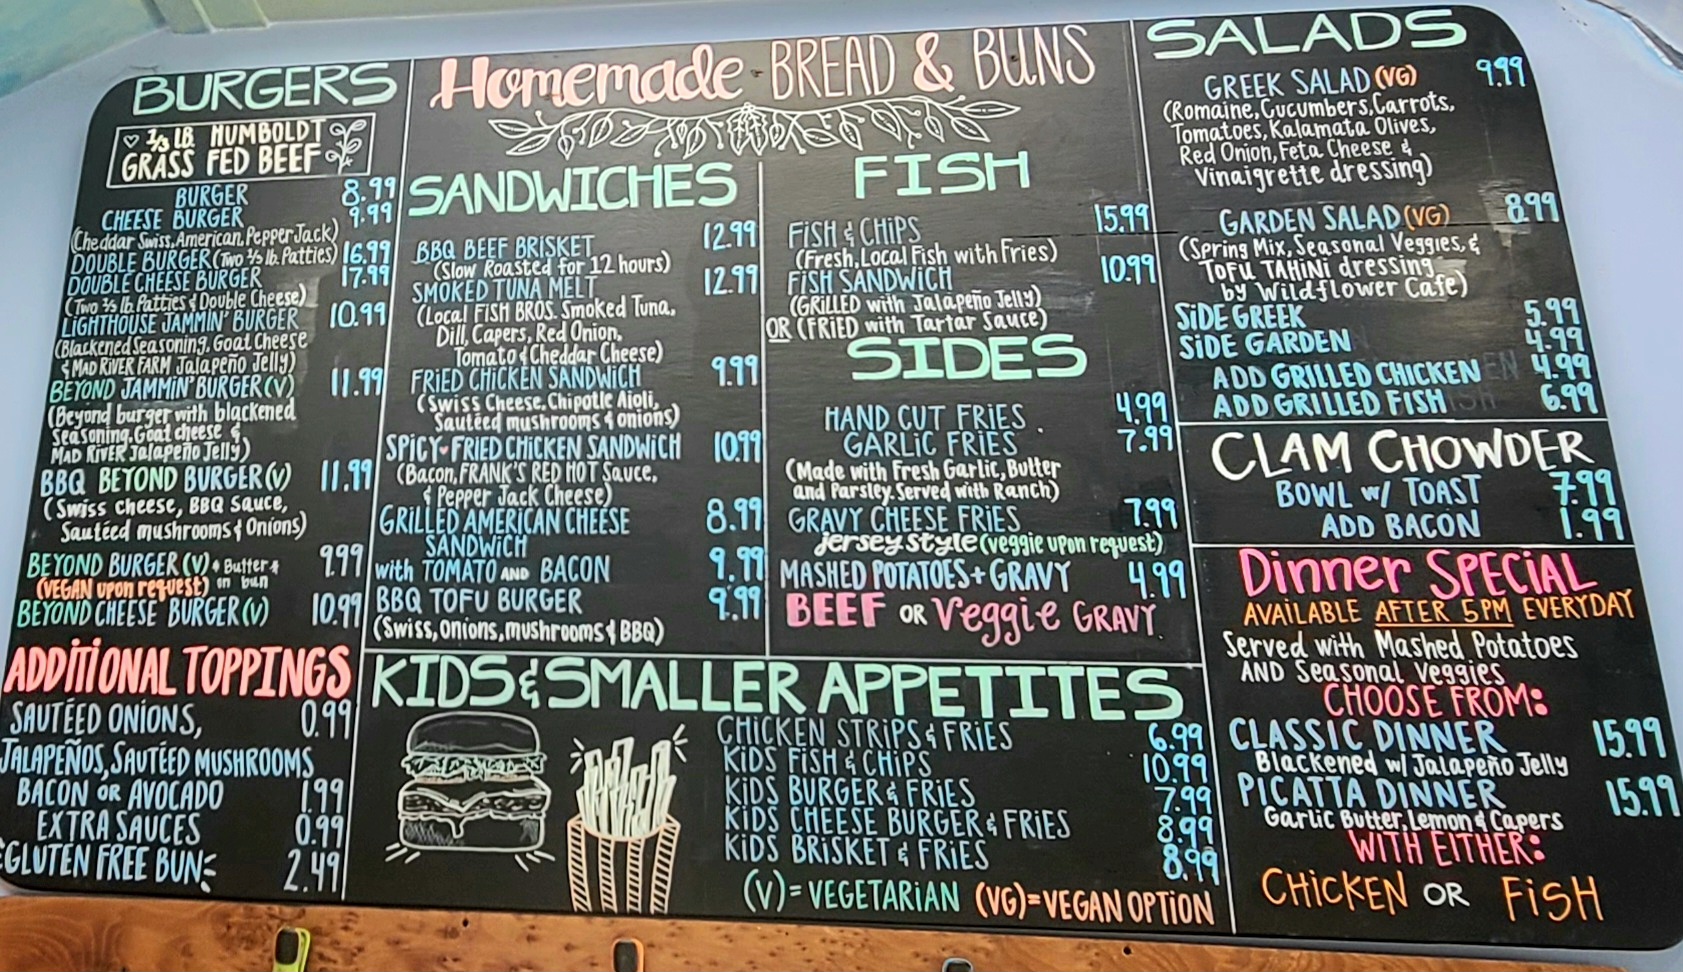 BURGERS
1/3 LB. HUMBOLDT
GRASS FED BEEF
BURGER 8.99
CHEESE BURGER 9.99
(Cheddar, Swiss, American, Pepper Jack)
DOUBLE BURGER (Two 1/3 lb. Patties) 16.99
DOUBLE CHEESE BURGER 17.99
(Two 1/3 lb. Patties & Double Cheese)
LIGHTHOUSE JAMMIN' BURGER 10.99
(Blackened Seasoning, Goat Cheese
& MAD RIVER FARM Jalapeño Jelly)
BEYOND JAMMIN' BURGER (V) 11.99
(Beyond burger with blackened
Seasoning, Goat cheese &
MAD RIVER Jalapeño Jelly)
BBQ BEYOND BURGER (V) 11.99
(Swiss cheese, BBQ Sauce,
Sautéed mushrooms & Onions)
BEYOND BURGER (V) • Butter 9.99
(VEGAN upon request) on bun
BEYOND CHEESE BURGER (V) 10.99
ADDITIONAL TOPPINGS
SAUTÉED ONIONS, 0.99
JALAPEÑOS, SAUTÉED MUSHROOMS
BACON OR AVOCADO 1.99
EXTRA SAUCES 0.99
GLUTEN FREE BUN 2.49
Homemade BREAD & BUNS
SANDWICHES
BBQ BEEF BRISKET 12.99
(Slow Roasted for 12 hours)
SMOKED TUNA MELT 12.99
(Local FISH BROS. Smoked Tuna,
Dill, Capers, Red Onion,
Tomato & Cheddar Cheese)
FRIED CHICKEN SANDWICH 9.99
(Swiss Cheese, Chipotle Aioli,
Sautéed mushrooms & onions)
SPICY FRIED CHICKEN SANDWICH 10.99
(Bacon, FRANK'S RED HOT Sauce,
& Pepper Jack Cheese)
GRILLED AMERICAN CHEESE 8.99
SANDWICH
with TOMATO AND BACON 9.99
BBQ TOFU BURGER 9.99
(Swiss, Onions, mushrooms & BBQ)
FISH
FISH & CHIPS 15.99
(Fresh, Local Fish with Fries)
FISH SANDWICH 10.99
(GRILLED with Jalapeño Jelly)
OR (FRIED with Tartar Sauce)
SIDES
HAND CUT FRIES 4.99
GARLIC FRIES 7.99
(Made with Fresh Garlic, Butter
and Parsley. Served with Ranch)
GRAVY CHEESE FRIES 7.99
jersey style (veggie upon request)
MASHED POTATOES + GRAVY 4.99
BEEF OR Veggie GRAVY
KIDS & SMALLER APPETITES
CHICKEN STRIPS & FRIES 6.99
KIDS FISH & CHIPS 10.99
KIDS BURGER & FRIES 7.99
KIDS CHEESE BURGER & FRIES 8.99
KIDS BRISKET & FRIES 8.99
(V) = VEGETARIAN (VG) = VEGAN OPTION
SALADS
GREEK SALAD (VG) 9.99
(Romaine, Cucumbers, Carrots,
Tomatoes, Kalamata Olives,
Red Onion, Feta Cheese &
Vinaigrette dressing)
GARDEN SALAD (VG) 8.99
(Spring Mix, Seasonal Veggies, &
TOFU TAHINI dressing
by Wildflower Cafe)
SIDE GREEK 5.99
SIDE GARDEN 4.99
ADD GRILLED CHICKEN 4.99
ADD GRILLED FISH 6.99
CLAM CHOWDER
BOWL w/ TOAST 7.99
ADD BACON 1.99
Dinner SPECIAL
AVAILABLE AFTER 5PM EVERYDAY
Served with Mashed Potatoes
AND Seasonal Veggies
CHOOSE FROM:
CLASSIC DINNER 15.99
Blackened w/ Jalapeño Jelly
PICATTA DINNER 15.99
Garlic Butter, Lemon & Capers
WITH EITHER:
CHICKEN OR FISH